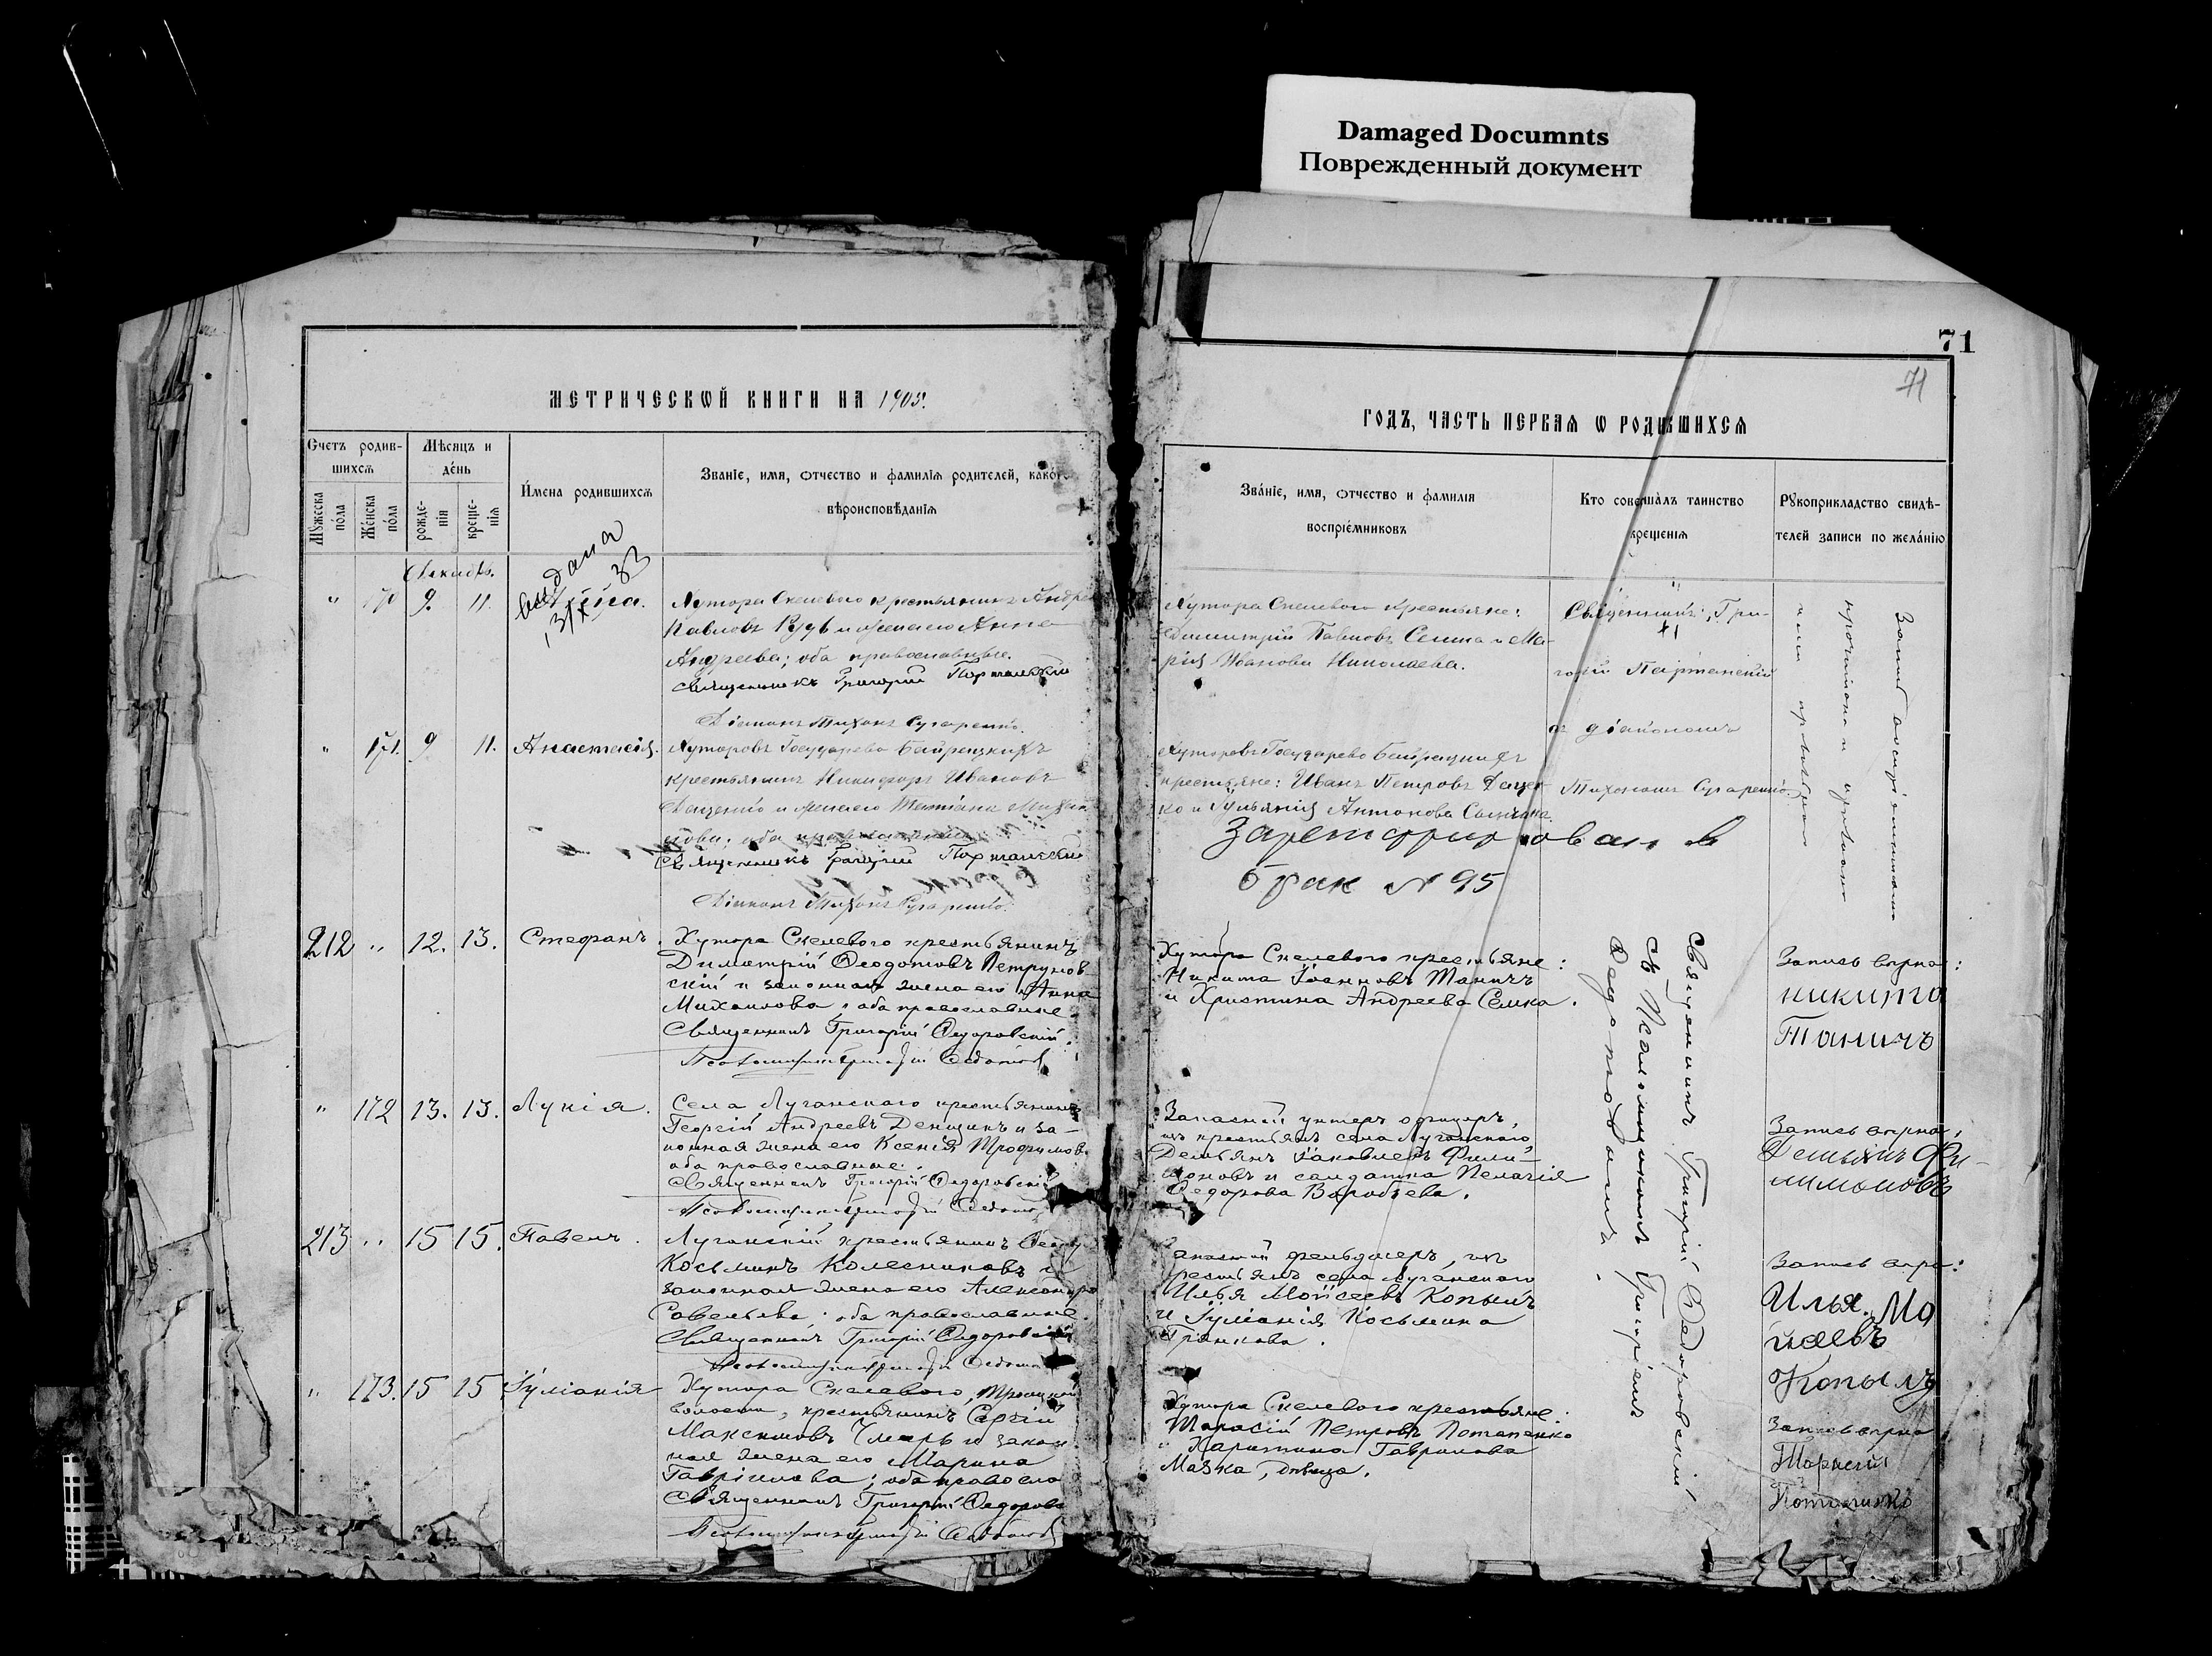 Damaged Documnts
Поврежденный документ
71
71
МЕТРИЧЕСКѠЙ КНИГИ НА 1905.
ГОДЪ, ЧАСТЬ ПЕРВАѦ Ѡ РОДИВШИХСѦ
Счетъ родив-
шихсѧ
Мꙋжеска
по́ла
Же́нска
по́ла
Мѣсяцъ и
де́нь
рожде-
нія
креще-
нія
И́мена родившихсѧ
Званіе, имя, ѡтчество и фамиліѧ родителей, како́го
вѣроисповѣ́даніѧ
Зва́ніе, имя, ѡтчество и фамиліѧ
воспріе́мниковъ
Кто соверша́лъ таинство
крещеніѧ
Рꙋкоприкладство свидѣ-
телей записи по жела́нію
Декабъ.
выдана
33
" 170 9. 11.
Хутора Скелевого крестьянинъ Андрей
Павловъ Рудь и жена его Анна
Андреева; оба православные.
Священникъ Григорій Парманскій
Діаконъ Тихонъ Сухаренко.
Хутора Скелевого крестьяне:
Димитрій Павловъ Семка и Ма-
рія Иванова Николаева.
Священникъ Гри-
горій Парманскій
съ діакономъ
Тихономъ Сухаренко
" 171. 9 11. Анастасія.
Хуторовъ Государево Байрацкихъ
крестьянинъ Никифоръ Ивановъ
Даценко и жена его Татіана Михаи-
лова; оба православные.
Священникъ Григорій Парманскій
Діаконъ Тихонъ Сухаренко.
Хуторовъ Государево Байрацкихъ
крестьяне: Иванъ Петровъ Дацен-
ко и Іульянія Антонова
Зарегистрирован в
брак N 95
212 " 12. 13. Стефанъ.
Хутора Скелевого крестьянинъ
Димитрій Ѳеодотовъ Петрунов-
скій и законная жена его Анна
Михаилова, оба православные.
Священникъ Григорій Ѳедоровскій.
Псаломщикъ Григорій Ѳедотовъ
Хутора Скелевого крестьяне:
Никита Іоанновъ Таничъ
и Христина Андреева Семка.
Священникъ Григорій Ѳедоровскій
съ Псаломщикомъ Григоріемъ
Ѳедотовымъ.
Запись вѣрна:
никита
Таничъ
" 172 13. 13. Лукія.
Села Луганского крестьянинъ
Георгій Андреевъ Денщикъ и за-
конная жена его Ксенія Трофимова
оба православные.
Священникъ Григорій Ѳедоровскій
Псаломщикъ Григорій Ѳедотовъ
Запасный унтеръ офицеръ,
изъ крестьянъ села Луганского,
Демьянъ Іаковлевъ Фили-
моновъ и солдатка Пелагія
Ѳедорова Воробьева.
Запись вѣрна,
Демьянъ Фи-
лимоновъ
213 " 15 15. Павелъ.
Луганскій крестьянинъ
Косьминъ Колесниковъ и
законная жена его Александра
Савельева, оба православные.
Священникъ Григорій Ѳедоровскій
Псаломщикъ Григорій Ѳедотовъ
Запасный фельдшеръ, изъ
крестьянъ села Луганского
Илья Моисеевъ Копылъ
и Іуліанія Косьмина
Запись вѣрна:
Илья Мо
исеевъ
Копылъ
" 173. 15 15 Іуліанія
Хутора Скелевого, Троицкой
волости, крестьянинъ Сергій
Максимовъ и закон-
ная жена его Марина
Гавріилова; оба правосла
Священникъ Григорій Ѳедоровс
Псаломщикъ Григорій Ѳедотовъ
Хутора Скелевого крестьяне:
Тарасій Петровъ Потапенко
и Харитина Гаврилова
Мазка, дѣвица.
Запись вѣрна
Тарасій
Потапенко